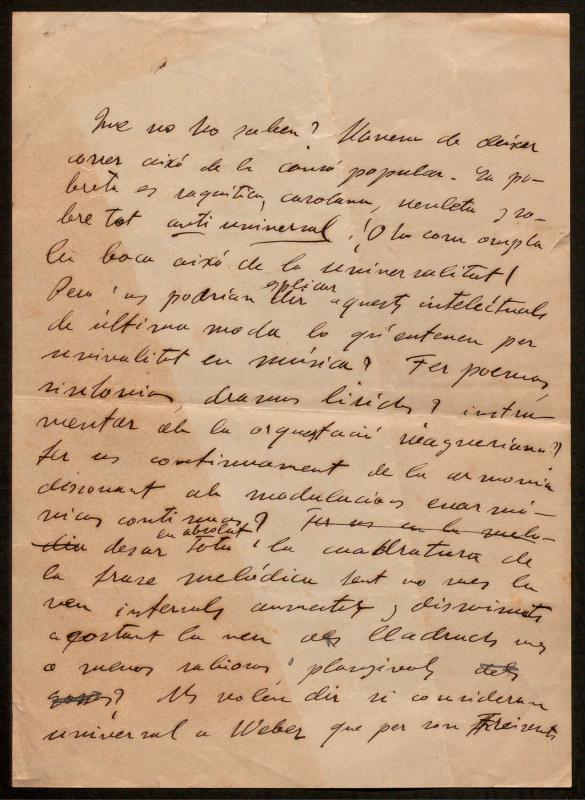 Que no ho saben? Havem de deixar
correr aixó de la cansó popular. La po-
breta es raquítica, carolana, neuleta y so-
bre tot anti universal. ¡O la com ompla
la boca aixó de la universalitat!
Peró ¿us podrían dir esplicar aquests intelectuals
de última moda lo qu'entenen per
univalitat en música? Fer poemas,
sinfonias, dramas lírichs? instru-
mentar ab la orquestació wagneriana?
fer us continuament de la armonía
disonant ab modulacions enarmó-
nicas continuas? Fer us en la melo-
dia desar en absolut tota la cuadratura de
la frase melódica fent no mes la
veu intervals aumentats y disminuits
acostant la veu als lladruchs mes
o menos rabiosos o planyívols dels
gossos? Us volen dir si consideran
universal a Weber que per son Freischutz